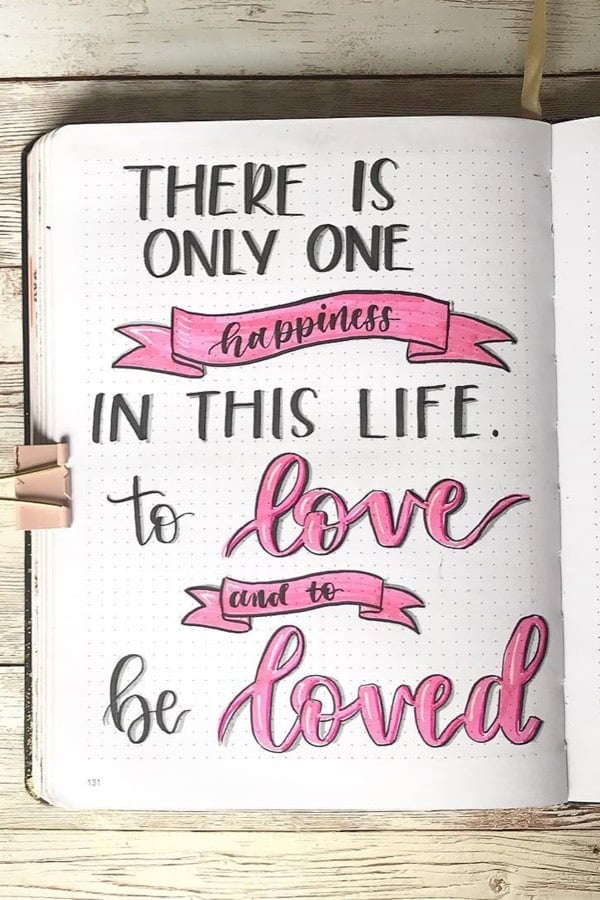 THERE IS
ONLY ONE
happiness
IN THIS LIFE.
to love
and to
be loved
131